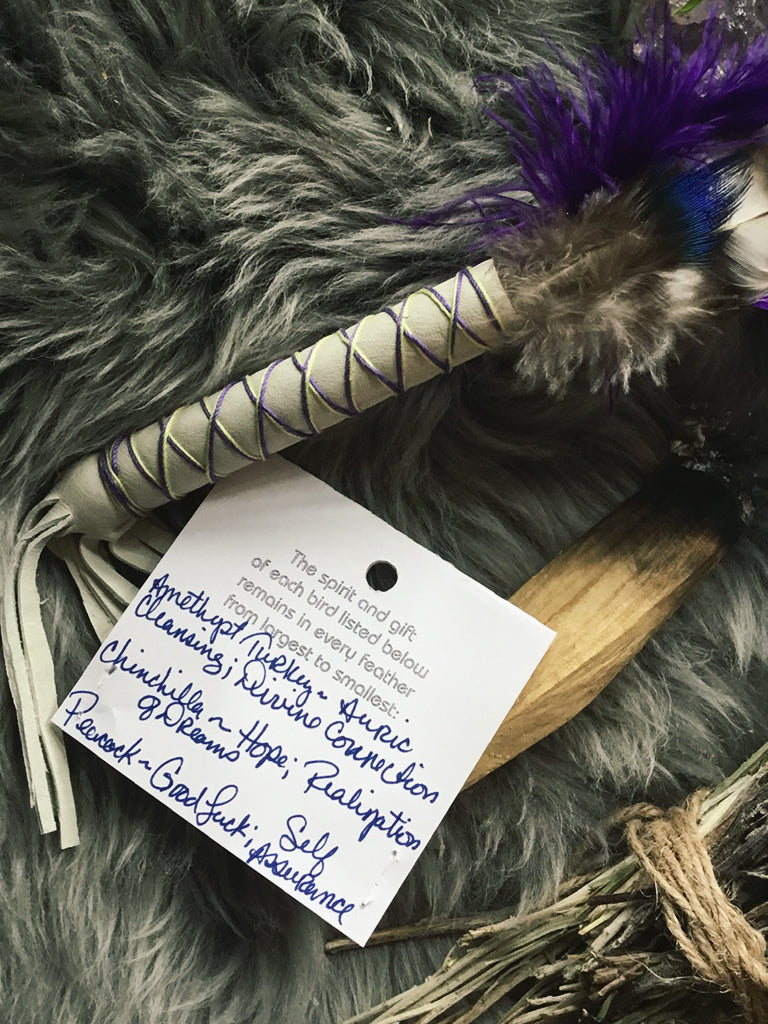 The spirit and gift
of each bird listed below
remains in every feather
from largest to smallest:
Amethyst Turkey ~ Auric
Cleansing; Divine Connection
Chinchilla ~ Hope; Realization
of Dreams
Peacock ~ Good Luck; Self
Assurance